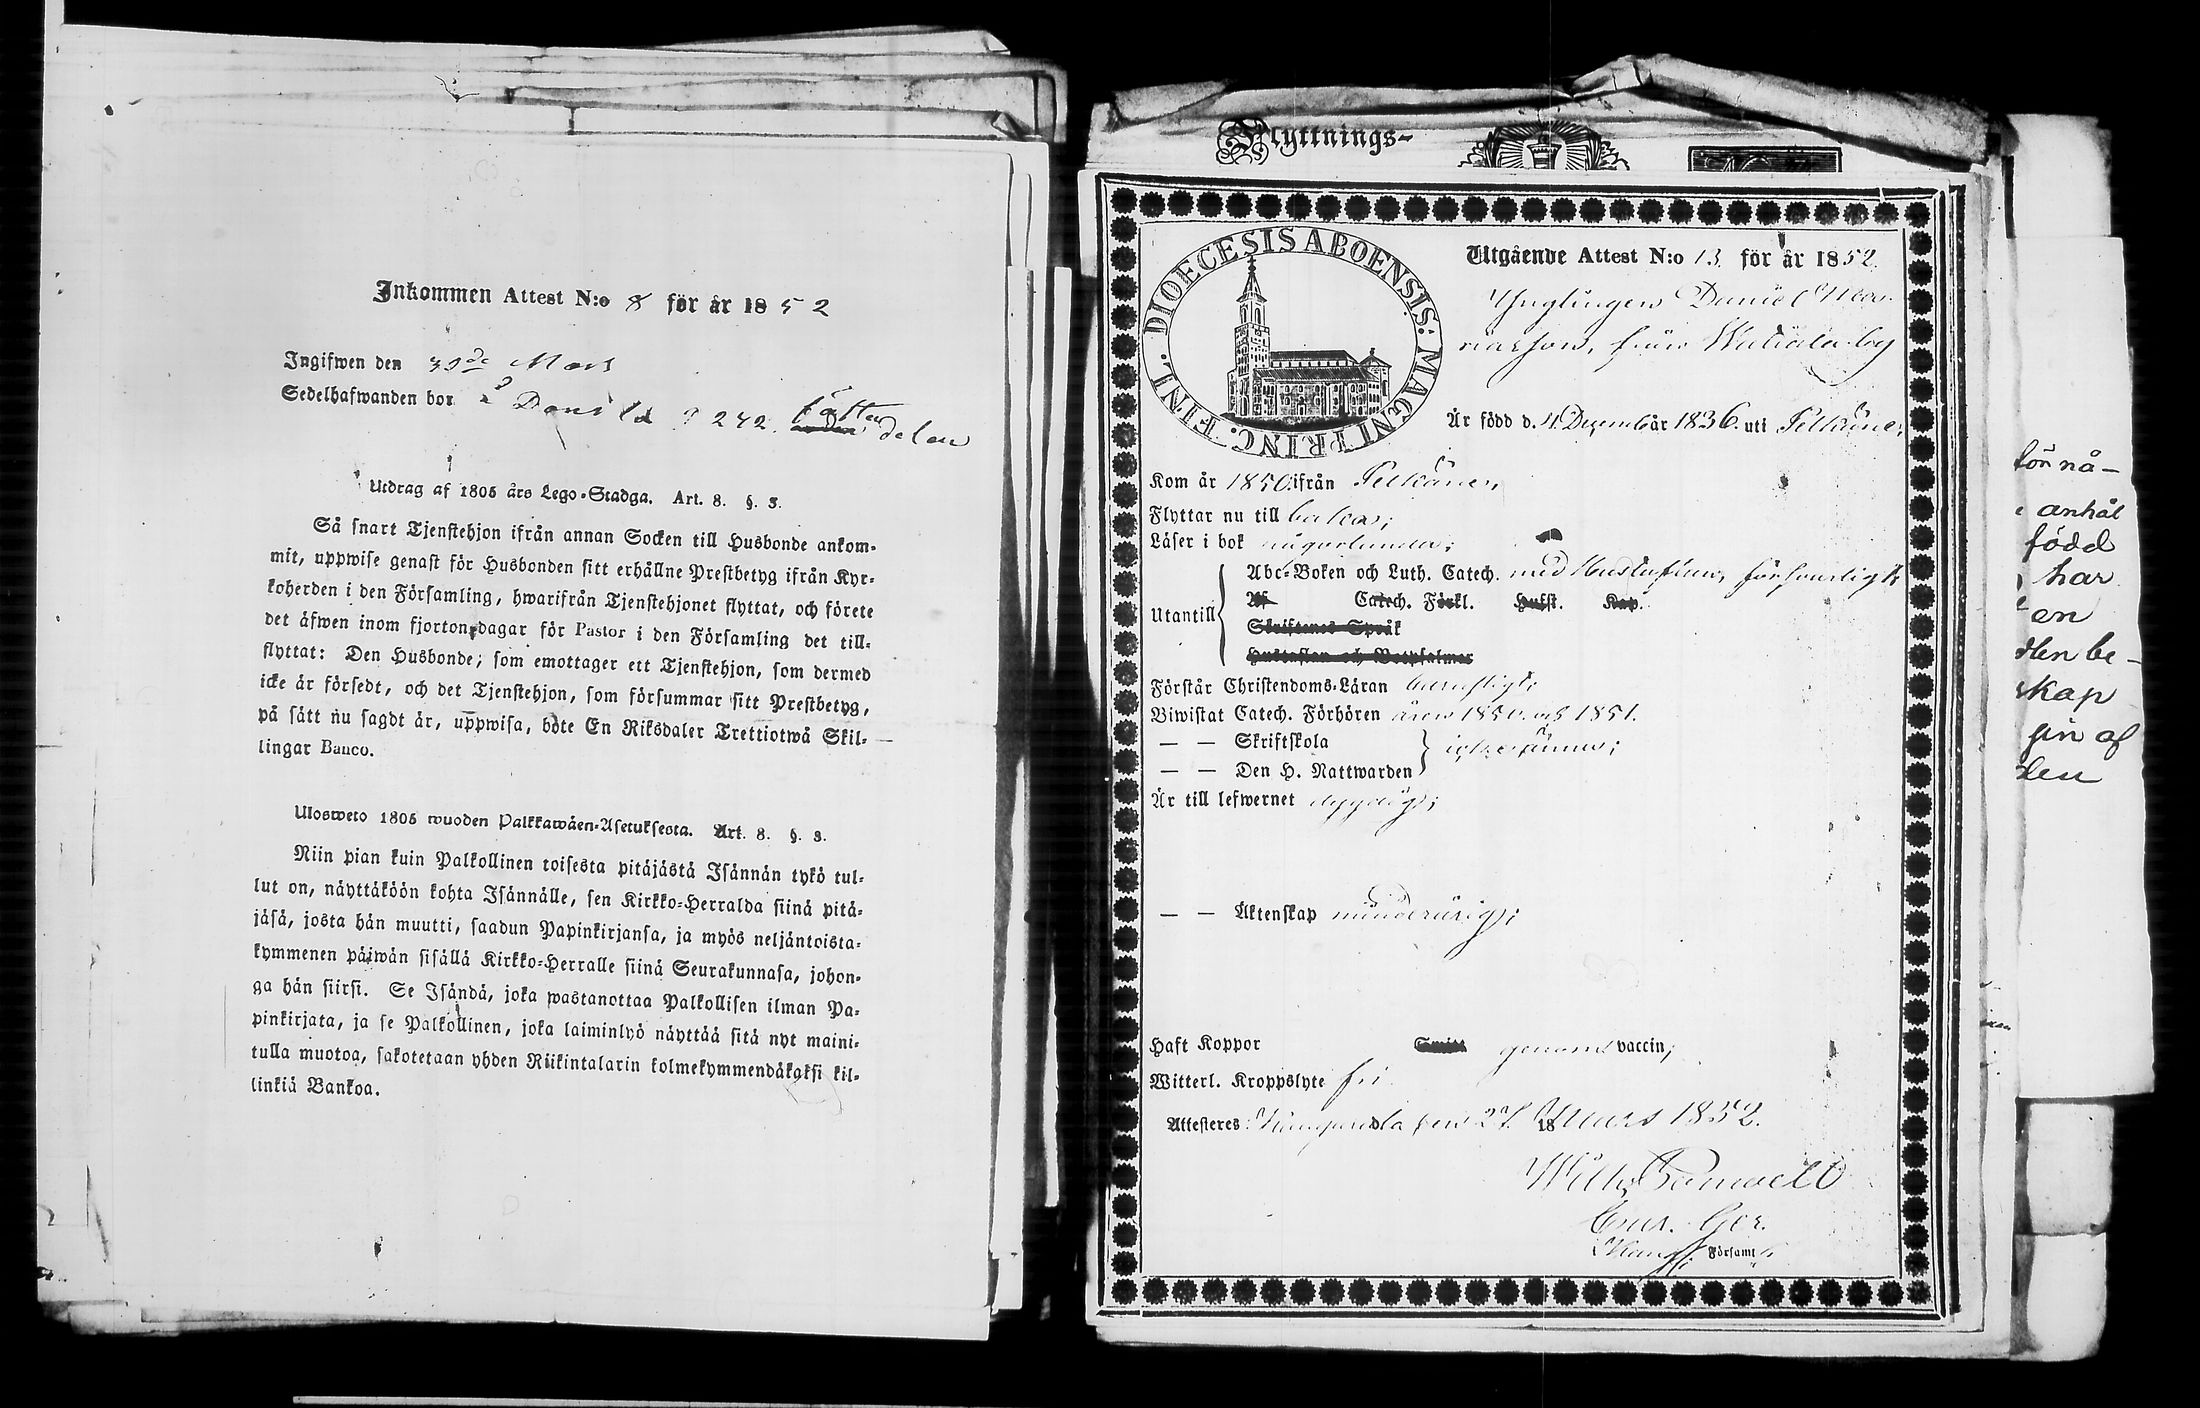 Inkommen Attest N:o 8 för år 1852
Ingifwen den 30de Mars
Sedelhafwanden bor å Danila p 242. delen
Utdrag af 1805 års Lego-Stadga. Art. 8. §. 3.
Så snart Tjenstehjon ifrån annan Socken till Husbonde ankom-
mit, uppwise genast för Husbonden sitt erhållne Prestbetyg ifrån Kyr-
koherden i den Församling, hwarifrån Tjenstehjonet flyttat, och förete
det äfwen inom fjorton dagar för Pastor i den Församling det till-
flyttat: Den Husbonde, som emottager ett Tjenstehjon, som dermed
icke är försedt, och det Tjenstehjon, som försummar sitt Prestbetyg,
på sätt nu sagdt är, uppwisa, böte En Riksdaler Trettiotwå Skil-
lingar Banco.
Ulosweto 1805 wuoden Palkkawäen-Asetuksesta. Art. 8. §. 3.
Niin pian kuin Palkollinen toisesta pitäjästä Isännän tykö tul-
lut on, näyttäköön kohta Isännälle, sen Kirkko-Herralda siinä pitä-
jäsä, josta hän muutti, saadun Papinkirjansa, ja myös neljäntoista-
kymmenen päiwän sisällä Kirkko-Herralle siinä Seurakunnasa, johon-
ga hän siirsi. Se Isändä, joka wastanottaa Palkollisen ilman Pa-
pinkirjata, ja se Palkollinen, joka laiminlyö näyttää sitä nyt maini-
tulla muotoa, sakotetaan yhden Riikintalarin kolmekymmendäkaksi kil-
linkiä Bankoa.
Flyttnings-
DIOECESIS ABOENSIS: MAGNI PRINC. FINL.
Utgående Attest N:o 13. för år 1852.
Ynglingen Daniel
från by
Är född d. 4 Decemb år 1836. uti Pelkäne;
Kom år 1850 ifrån Pelkäne,
Flyttar nu till
Läser i bok någorlunda;
Utantill
Abc-Boken och Luth. Catech. med Hustaflan, försvarligt
Af Catech. Förkl. Hufst. Kap.
Skriftenes Språk
Hustaflan och Botpsalmer
Förstår Christendoms-Läran
Biwistat Catech. Förhören åren 1850. och 1851.
— — Skriftskola
icke ännu;
— — Den H. Nattwarden
Är till lefwernet dygdig;
— — Äktenskap minderårig;
Haft Koppor genom vaccin;
Witterl. Kroppslyte fri.
Attesteres: Kangasala den 27. 18 Mars 1852.
Församl.
för nå-
anhål
född
har
en
den be-
skap
gin af
den